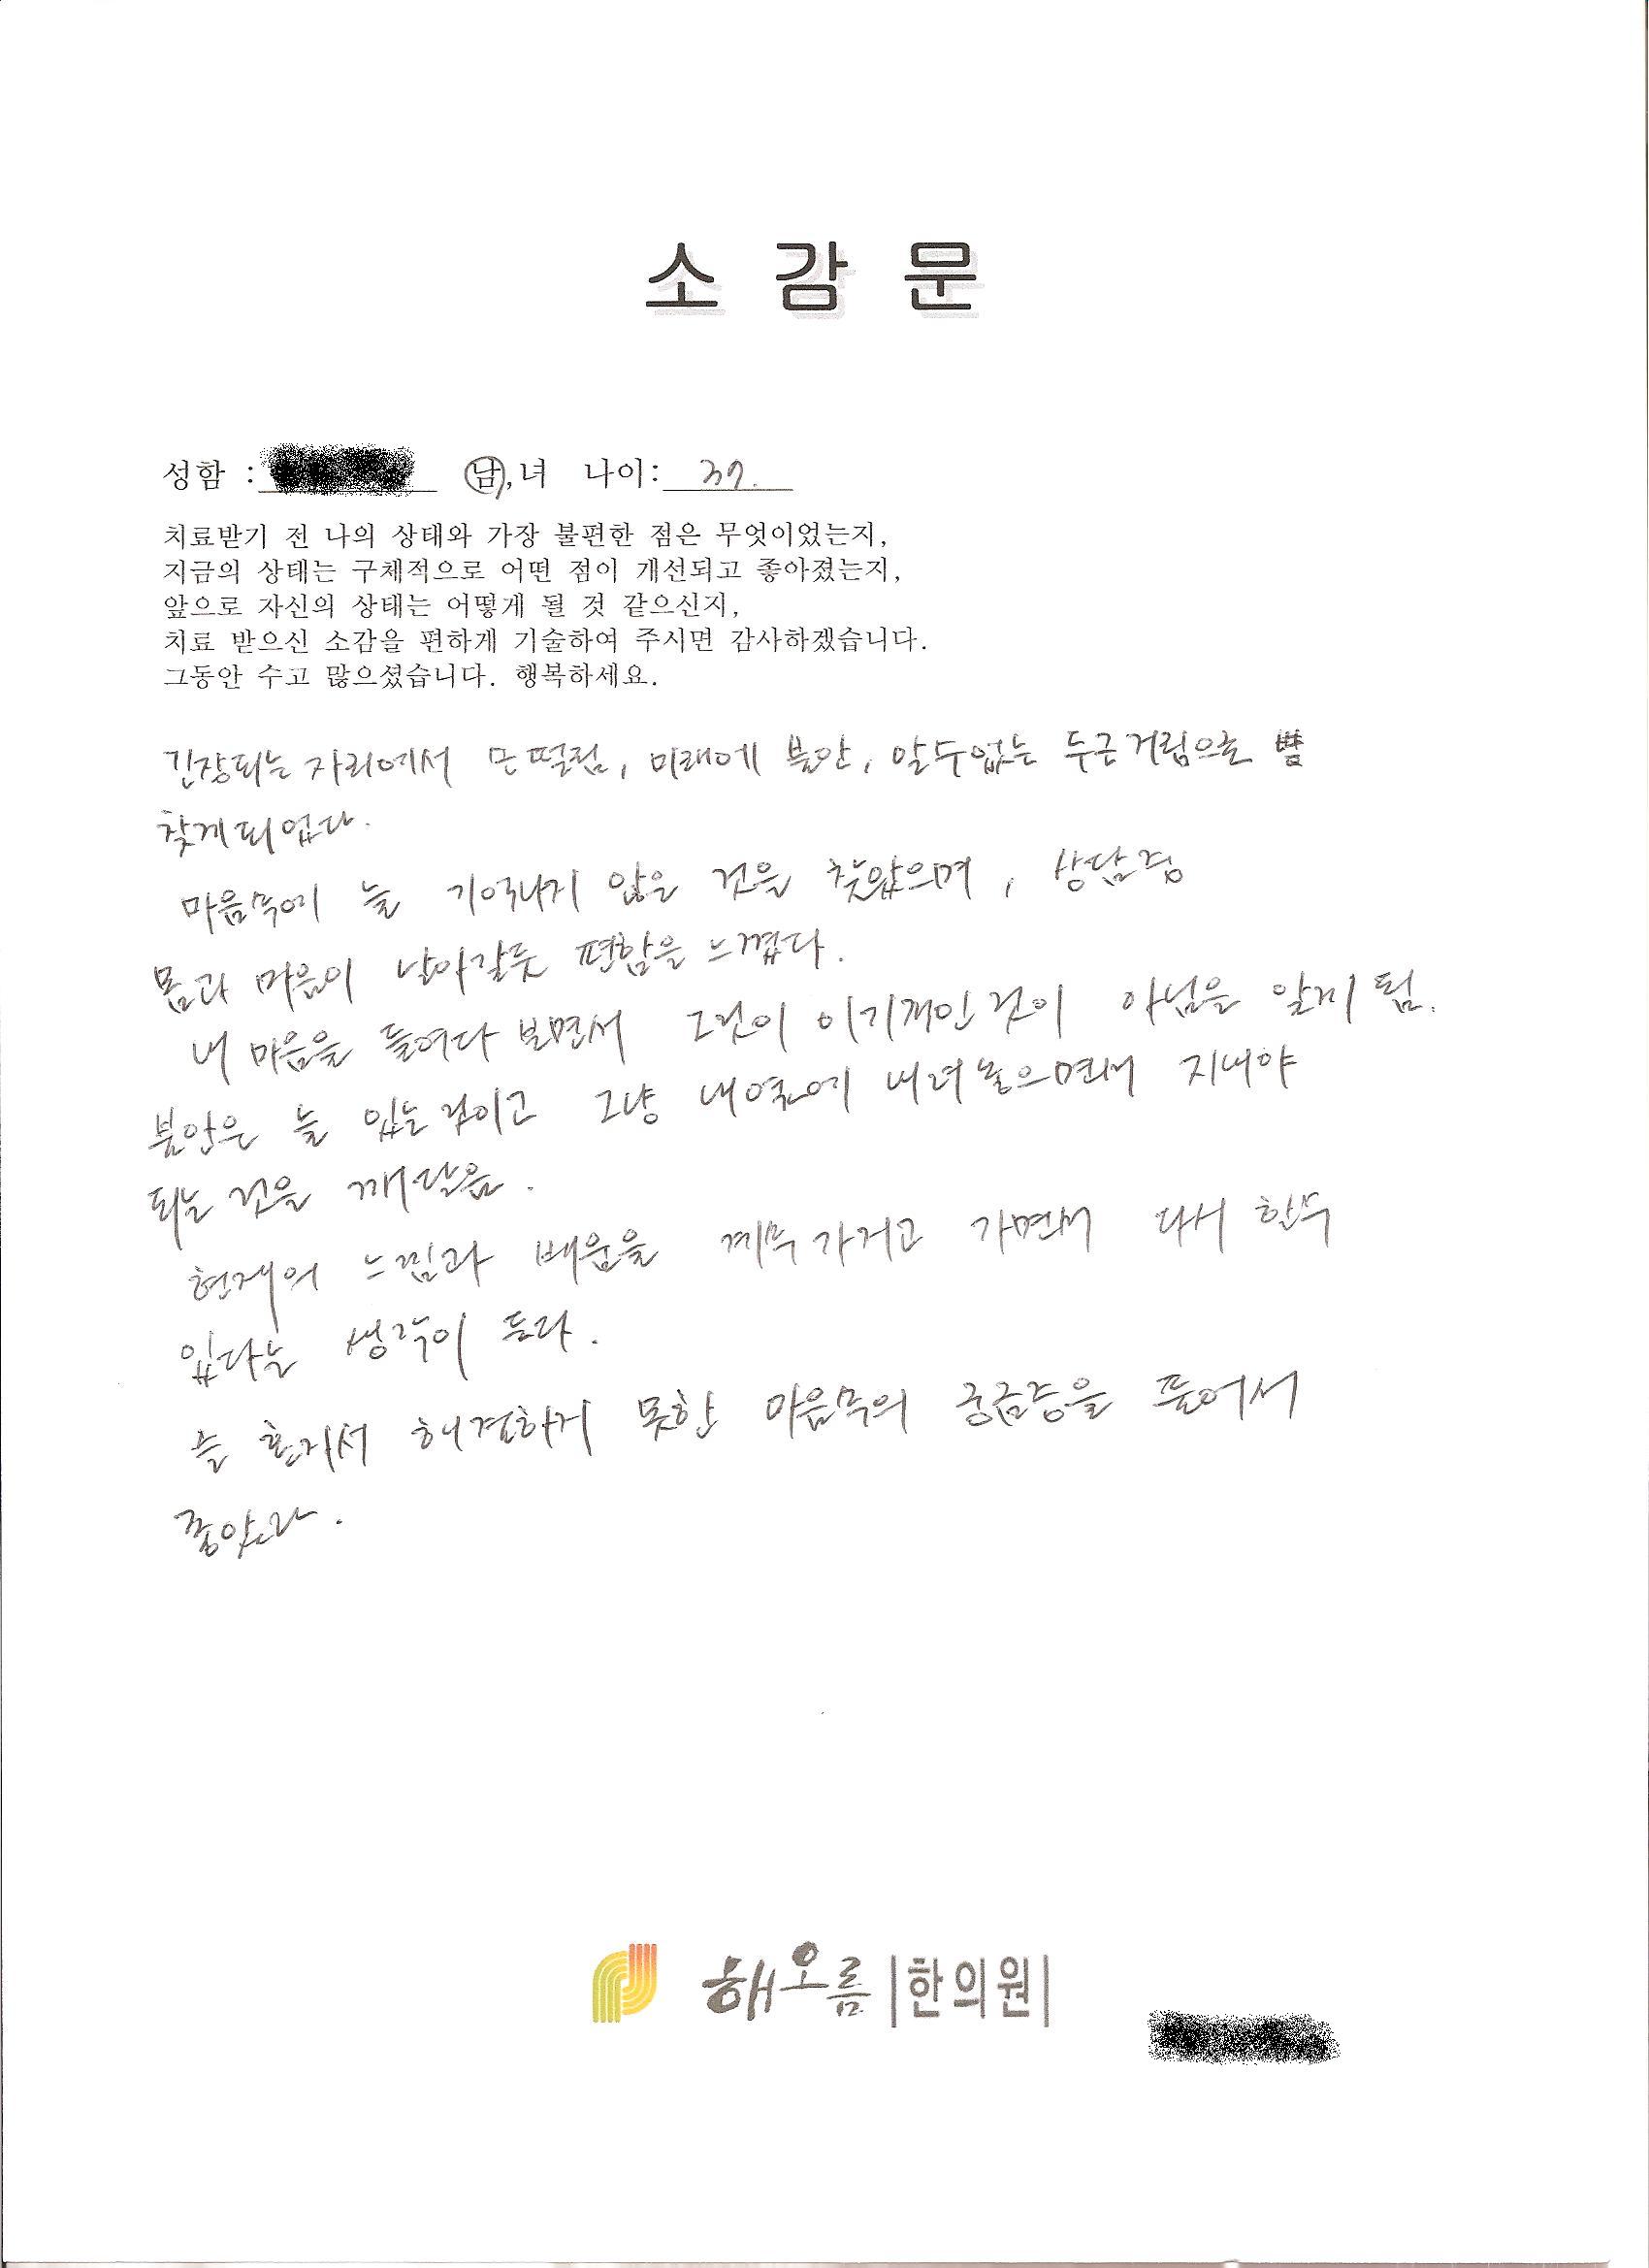 소 감 문
성함 : 남,녀 나이: 37.
치료받기 전 나의 상태와 가장 불편한 점은 무엇이었는지,
지금의 상태는 구체적으로 어떤 점이 개선되고 좋아졌는지,
앞으로 자신의 상태는 어떻게 될 것 같으신지,
치료 받으신 소감을 편하게 기술하여 주시면 감사하겠습니다.
그동안 수고 많으셨습니다. 행복하세요.
긴장되는 자리에서 떨림, 미래에 불안, 알수없는 두근거림으로
찾게되었다.
마음속에 늘 기억나지 않은 것을 찾았으며, 상담중
몸과 마음이 날아갈듯 편함을 느꼈다.
내 마음을 들여다 보면서 그것이 이기적인것이 아님을 알게 됨.
불안은 늘 있는것이고 그냥 내옆에 내려놓으면서 지내야
되는 것을 깨달음.
현재의 느낌과 배움을 계속 가지고 가면서 다시 할수
있다는 생각이 든다.
늘 혼자서 해결하지 못한 마음속의 궁금증을 풀어서
좋았다.
해오름 |한의원|